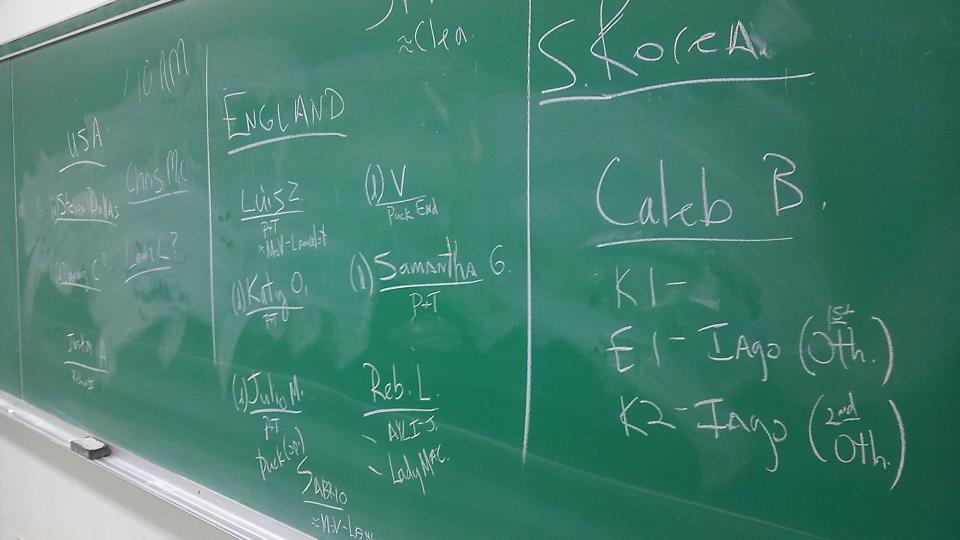 ≈Clea
10 AM
USA
Chris Mc
Steven Dallas
Danny C?
Leah C?
Justin A
ENGLAND
Luis Z
P+T
≈MoV-Launcelot
(1) V
Puck End
(1) Katy O.
P+T
(1) Samantha G.
P+T
(1) Julio M.
P+T
Puck (op)
Reb. L.
\ AYLI-J.
\ Lady Mac.
SABRIO
≈MoV-Laun
S. Korea.
Caleb B.
K1-
E1-Iago (1st Oth.)
K2-Iago (2nd Oth.)